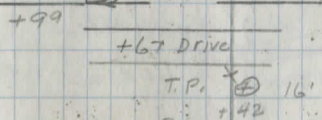 +99
+67 Drive
T.P. 16'
+42